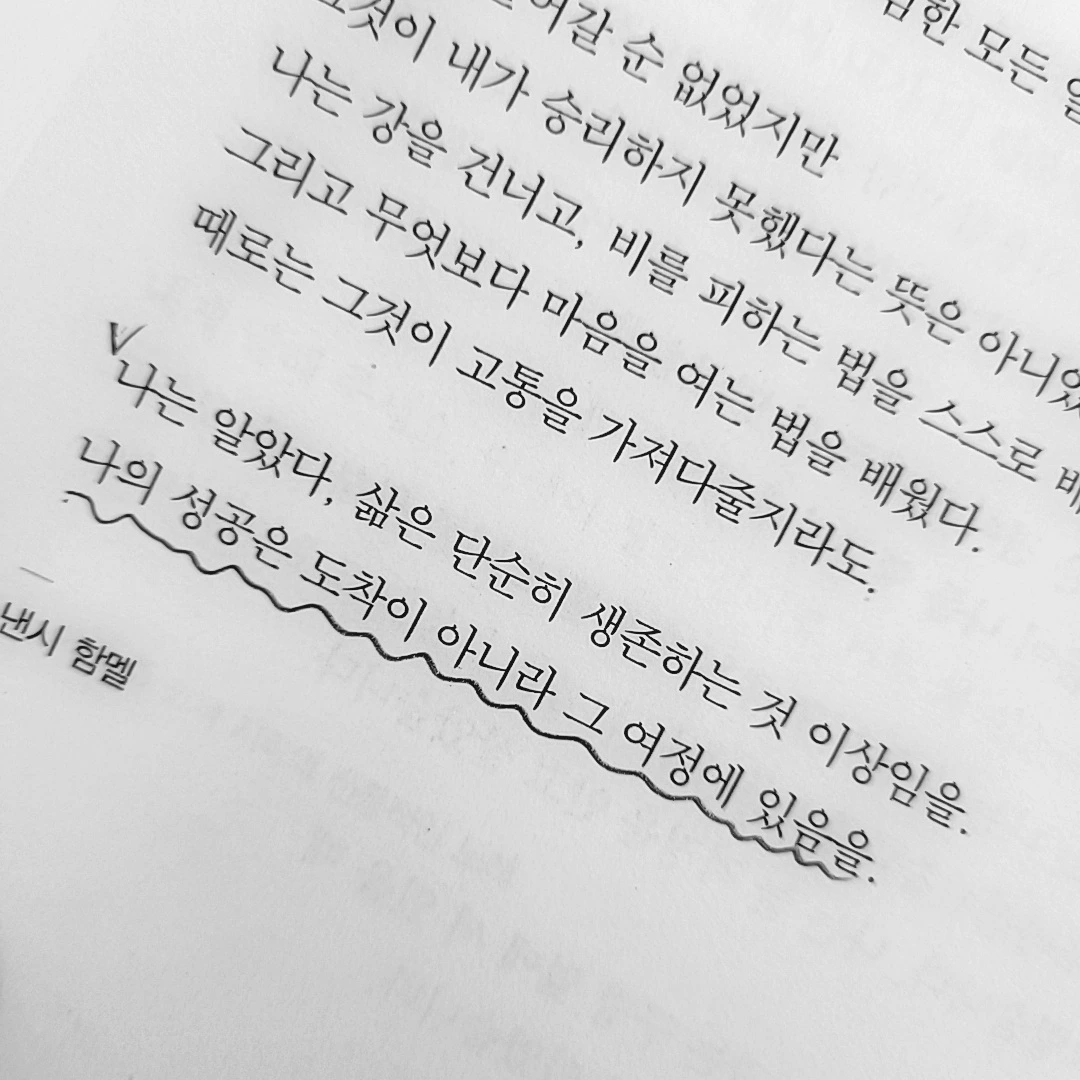 한 모든
순 없었지만
내가 승리하지 못했다는 뜻은
나는 강을 건너고, 비를 피하는 법을 스스로
그리고 무엇보다 마음을 여는 법을 배웠다.
때로는 그것이 고통을 가져다줄지라도.
나는 알았다, 삶은 단순히 생존하는 것 이상임을.
나의 성공은 도착이 아니라 그 여정에 있음을.
낸시 함멜